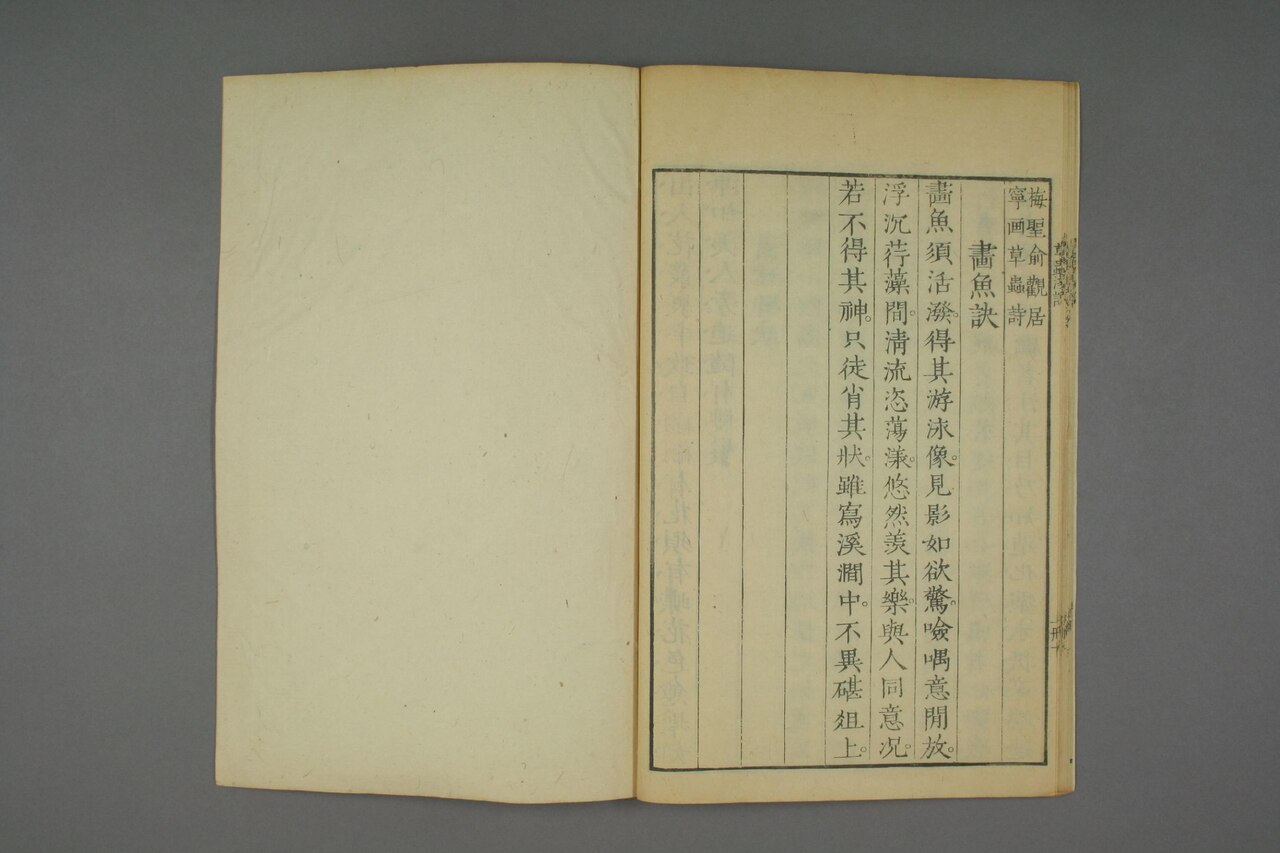 梅聖俞觀居
寧画草蟲詩
畫魚訣
畫魚須活潑。得其游泳像。見影如欲驚。噞喁意閒放。
浮沉荇藻間。清流恣蕩漾。悠然羨其樂。與人同意况。
若不得其神。只徒肖其狀。雖寫溪澗中。不異碪俎上。